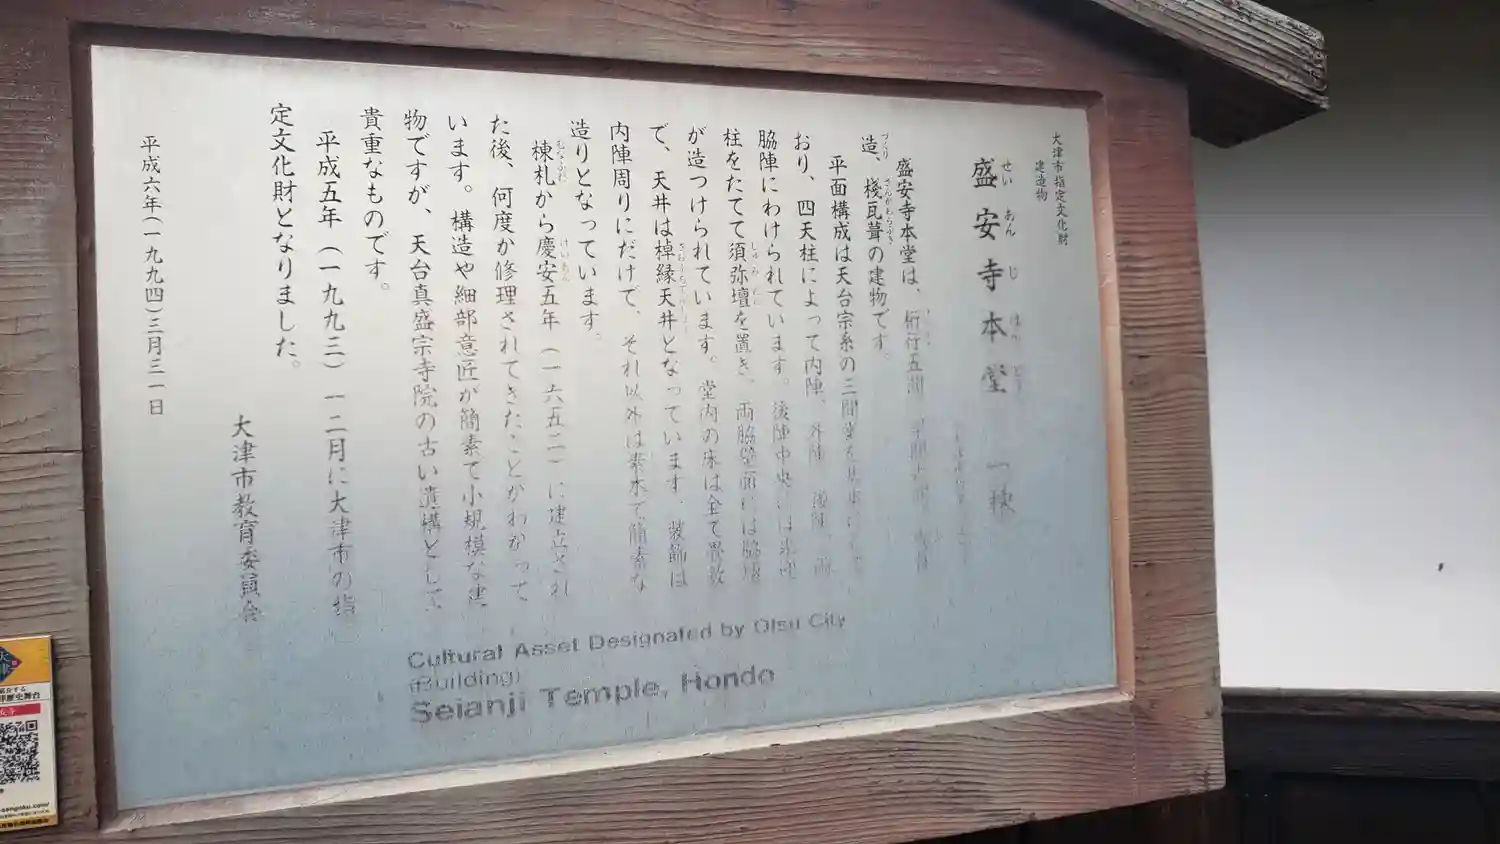 大津市指定文化財
建造物
盛安寺本堂 一棟
せいあんじほんどう
盛安寺本堂は、桁行五間
造、棧瓦葺の建物です。
平面構成は天台宗系の三間堂を
おり、四天柱によって内陣、外陣、後陣、両
脇陣にわけられています。後陣中央には来迎
柱をたてて須弥壇を置き、両脇壁面には脇壇
が造つけられています。堂内の床は全て畳敷
で、天井は棹縁天井となっています。装飾は
内陣周りにだけで、それ以外は素木で簡素な
造りとなっています。
棟札から慶安五年(一六五二)に建立され
た後、何度か修理されてきたことがわかって
います。構造や細部意匠が簡素で小規模な建
物ですが、天台真盛宗寺院の古い遺構として、
貴重なものです。
平成五年(一九九三)一二月に大津市の指
定文化財となりました。
大津市教育委員会
平成六年(一九九四)三月三一日
Cultural Asset Designated by Otsu City
(Building)
Seianji Temple, Hondo
大津